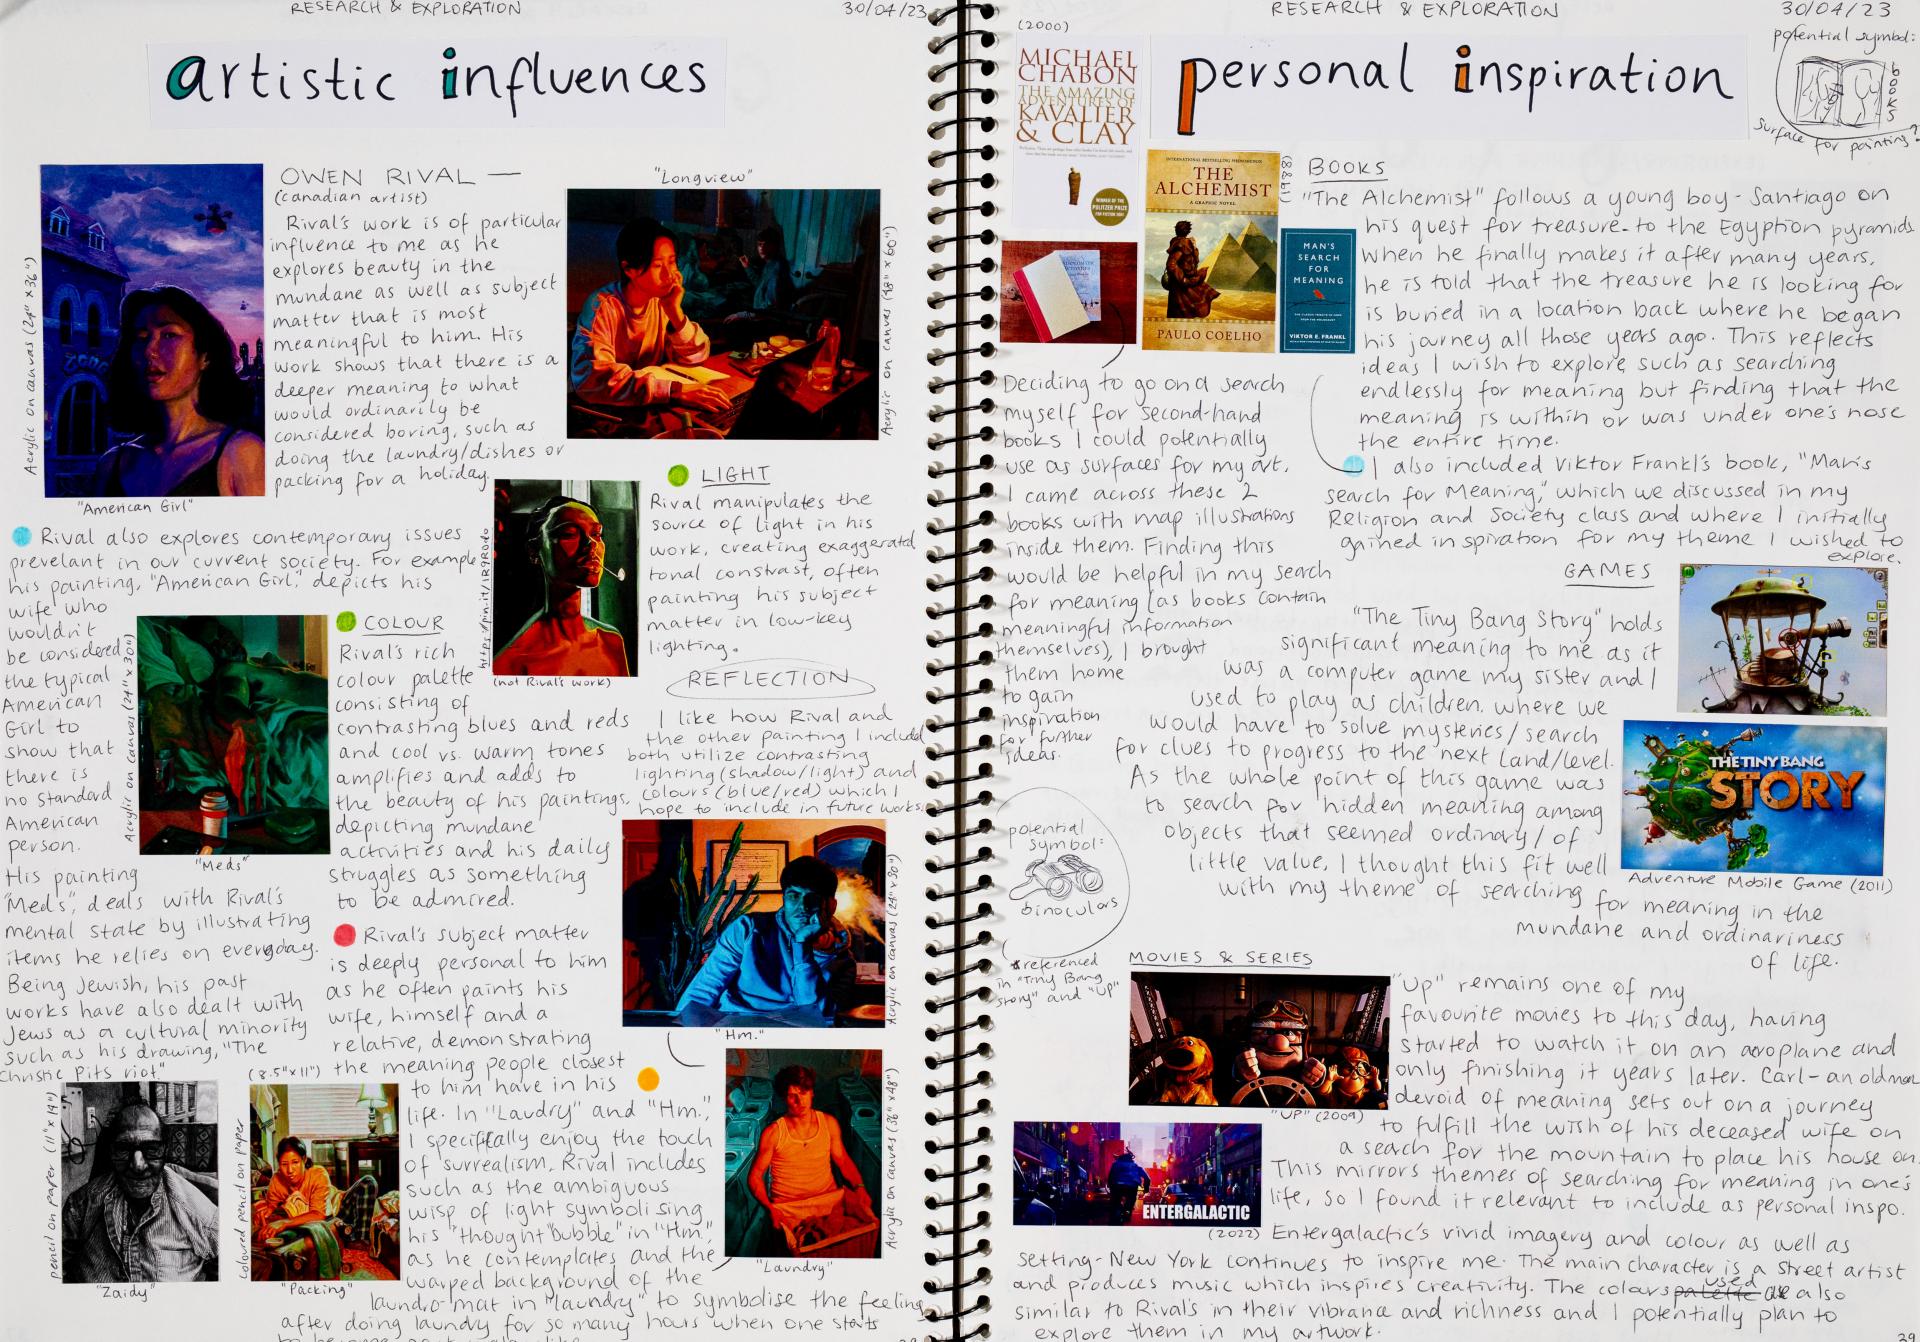 RESEARCH & EXPLORATION
30/04/23
artistic influences
"American Girl"
Acrylic on canvas (24" x 36")
OWEN RIVAL —
(canadian artist)
Rival's work is of particular
influence to me as he
explores beauty in the
mundane as well as subject
matter that is most
meaningful to him. His
work shows that there is a
deeper meaning to what
would ordinarily be
considered boring, such as
doing the laundry/dishes or
packing for a holiday.
"Longview"
Acrylic on canvas (48" x 60")
Rival also explores contemporary issues
prevelant in our current society. For example
his painting, "American Girl," depicts his
wife who
wouldn't
be considered
the typical
American
Girl to
show that
there is
no standard
American
person.
His painting
"Meds", deals with Rival's
mental state by illustrating
items he relies on everyday.
Being Jewish, his past
works have also dealt with
Jews as a cultural minority
such as his drawing, "The
Christie Pits riot"
Acrylic on canvas (24" x 30")
"Meds"
COLOUR
Rival's rich
colour palette
consisting of
contrasting blues and reds
and cool vs. warm tones
amplifies and adds to
the beauty of his paintings,
depicting mundane
activities and his daily
struggles as something
to be admired.
https://pin.it/1R9Rodo
(not Rival's work)
LIGHT
Rival manipulates the
source of light in his
work, creating exaggerated
tonal constrast, often
painting his subject
matter in low-key
lighting.
REFLECTION
I like how Rival and
the other painting I includ
both utilize contrasting
lighting (shadow/light) and
colours (blue/red) which I
hope to include in future works.
Acrylic on canvas (24" x 30")
"Hm."
Rival's subject matter
is deeply personal to him
as he often paints his
wife, himself and a
relative, demonstrating
the meaning people closest
to him have in his
life. In "Laudry" and "Hm.",
I specifically enjoy the touch
of surrealism, Rival includes
such as the ambiguous
wisp of light symbolising
his "thought bubble" in "Hm,"
as he contemplates and the
warped background of the
laundro-mat in "laundry" to symbolise the feeling
after doing laundry for so many hours when one starts
pencil on paper (11" x 14")
"Zaidy"
(8.5" x 11")
coloured pencil on paper
"Packing"
Acrylic on canvas (36" x 48")
"Laundry"
RESEARCH & EXPLORATION
30/04/23
personal inspiration
potential symbol:
books
surface for painting?
(2000)
MICHAEL
CHABON
THE AMAZING
ADVENTURES OF
KAVALIER
& CLAY
WINNER OF THE
PULITZER PRIZE
FOR FICTION 2001
INTERNATIONAL BESTSELLING PHENOMENON
THE
ALCHEMIST
A GRAPHIC NOVEL
PAULO COELHO
(1988)
MAN'S
SEARCH
FOR
MEANING
VIKTOR E. FRANKL
BOOKS
"The Alchemist" follows a young boy - Santiago on
his quest for treasure - to the Egyption pyramids
when he finally makes it after many years,
he is told that the treasure he is looking for
is buried in a location back where he began
his journey all those years ago. This reflects
ideas I wish to explore such as searching
endlessly for meaning but finding that the
meaning is within or was under one's nose
the entire time.
I also included Viktor Frankl's book, "Man's
search for Meaning," which we discussed in my
Religion and Society class and where I initially
gained inspiration for my theme I wished to
explore.
Deciding to go on a search
myself for second-hand
books I could potentially
use as surfaces for my art,
I came across these 2
books with map illustrations
inside them. Finding this
would be helpful in my search
for meaning (as books contain
meaningful information
themselves), I brought
them home
to gain
inspiration
for further
ideas.
GAMES
"The Tiny Bang Story" holds
significant meaning to me as it
was a computer game my sister and I
used to play as children. where we
would have to solve mysteries/search
for clues to progress to the next Land/level.
As the whole point of this game was
to search for hidden meaning among
objects that seemed ordinary/of
little value, I thought this fit well
with my theme of searching
for meaning in the
mundane and ordinariness
of life.
THE TINY BANG
STORY
Adventure Mobile Game (2011)
potential
symbol:
binoculars
*referenced
in "Tiny Bang
Story" and "UP"
MOVIES & SERIES
"UP" (2009)
"Up" remains one of my
favourite movies to this day, having
started to watch it on an aroplane and
only finishing it years later. Carl - an old man
devoid of meaning sets out on a journey
to fulfill the wish of his deceased wife on
a search for the mountain to place his house on.
This mirrors themes of searching for meaning in one's
life, so I found it relevant to include as personal inspo.
ENTERGALACTIC
(2022)
Entergalactic's vivid imagery and colour as well as
setting - New York continues to inspire me. The main character is a street artist
and produces music which inspires creativity. The colours palette used are also
similar to Rival's in their vibrance and richness and I potentially plan to
explore them in my artwork.
39